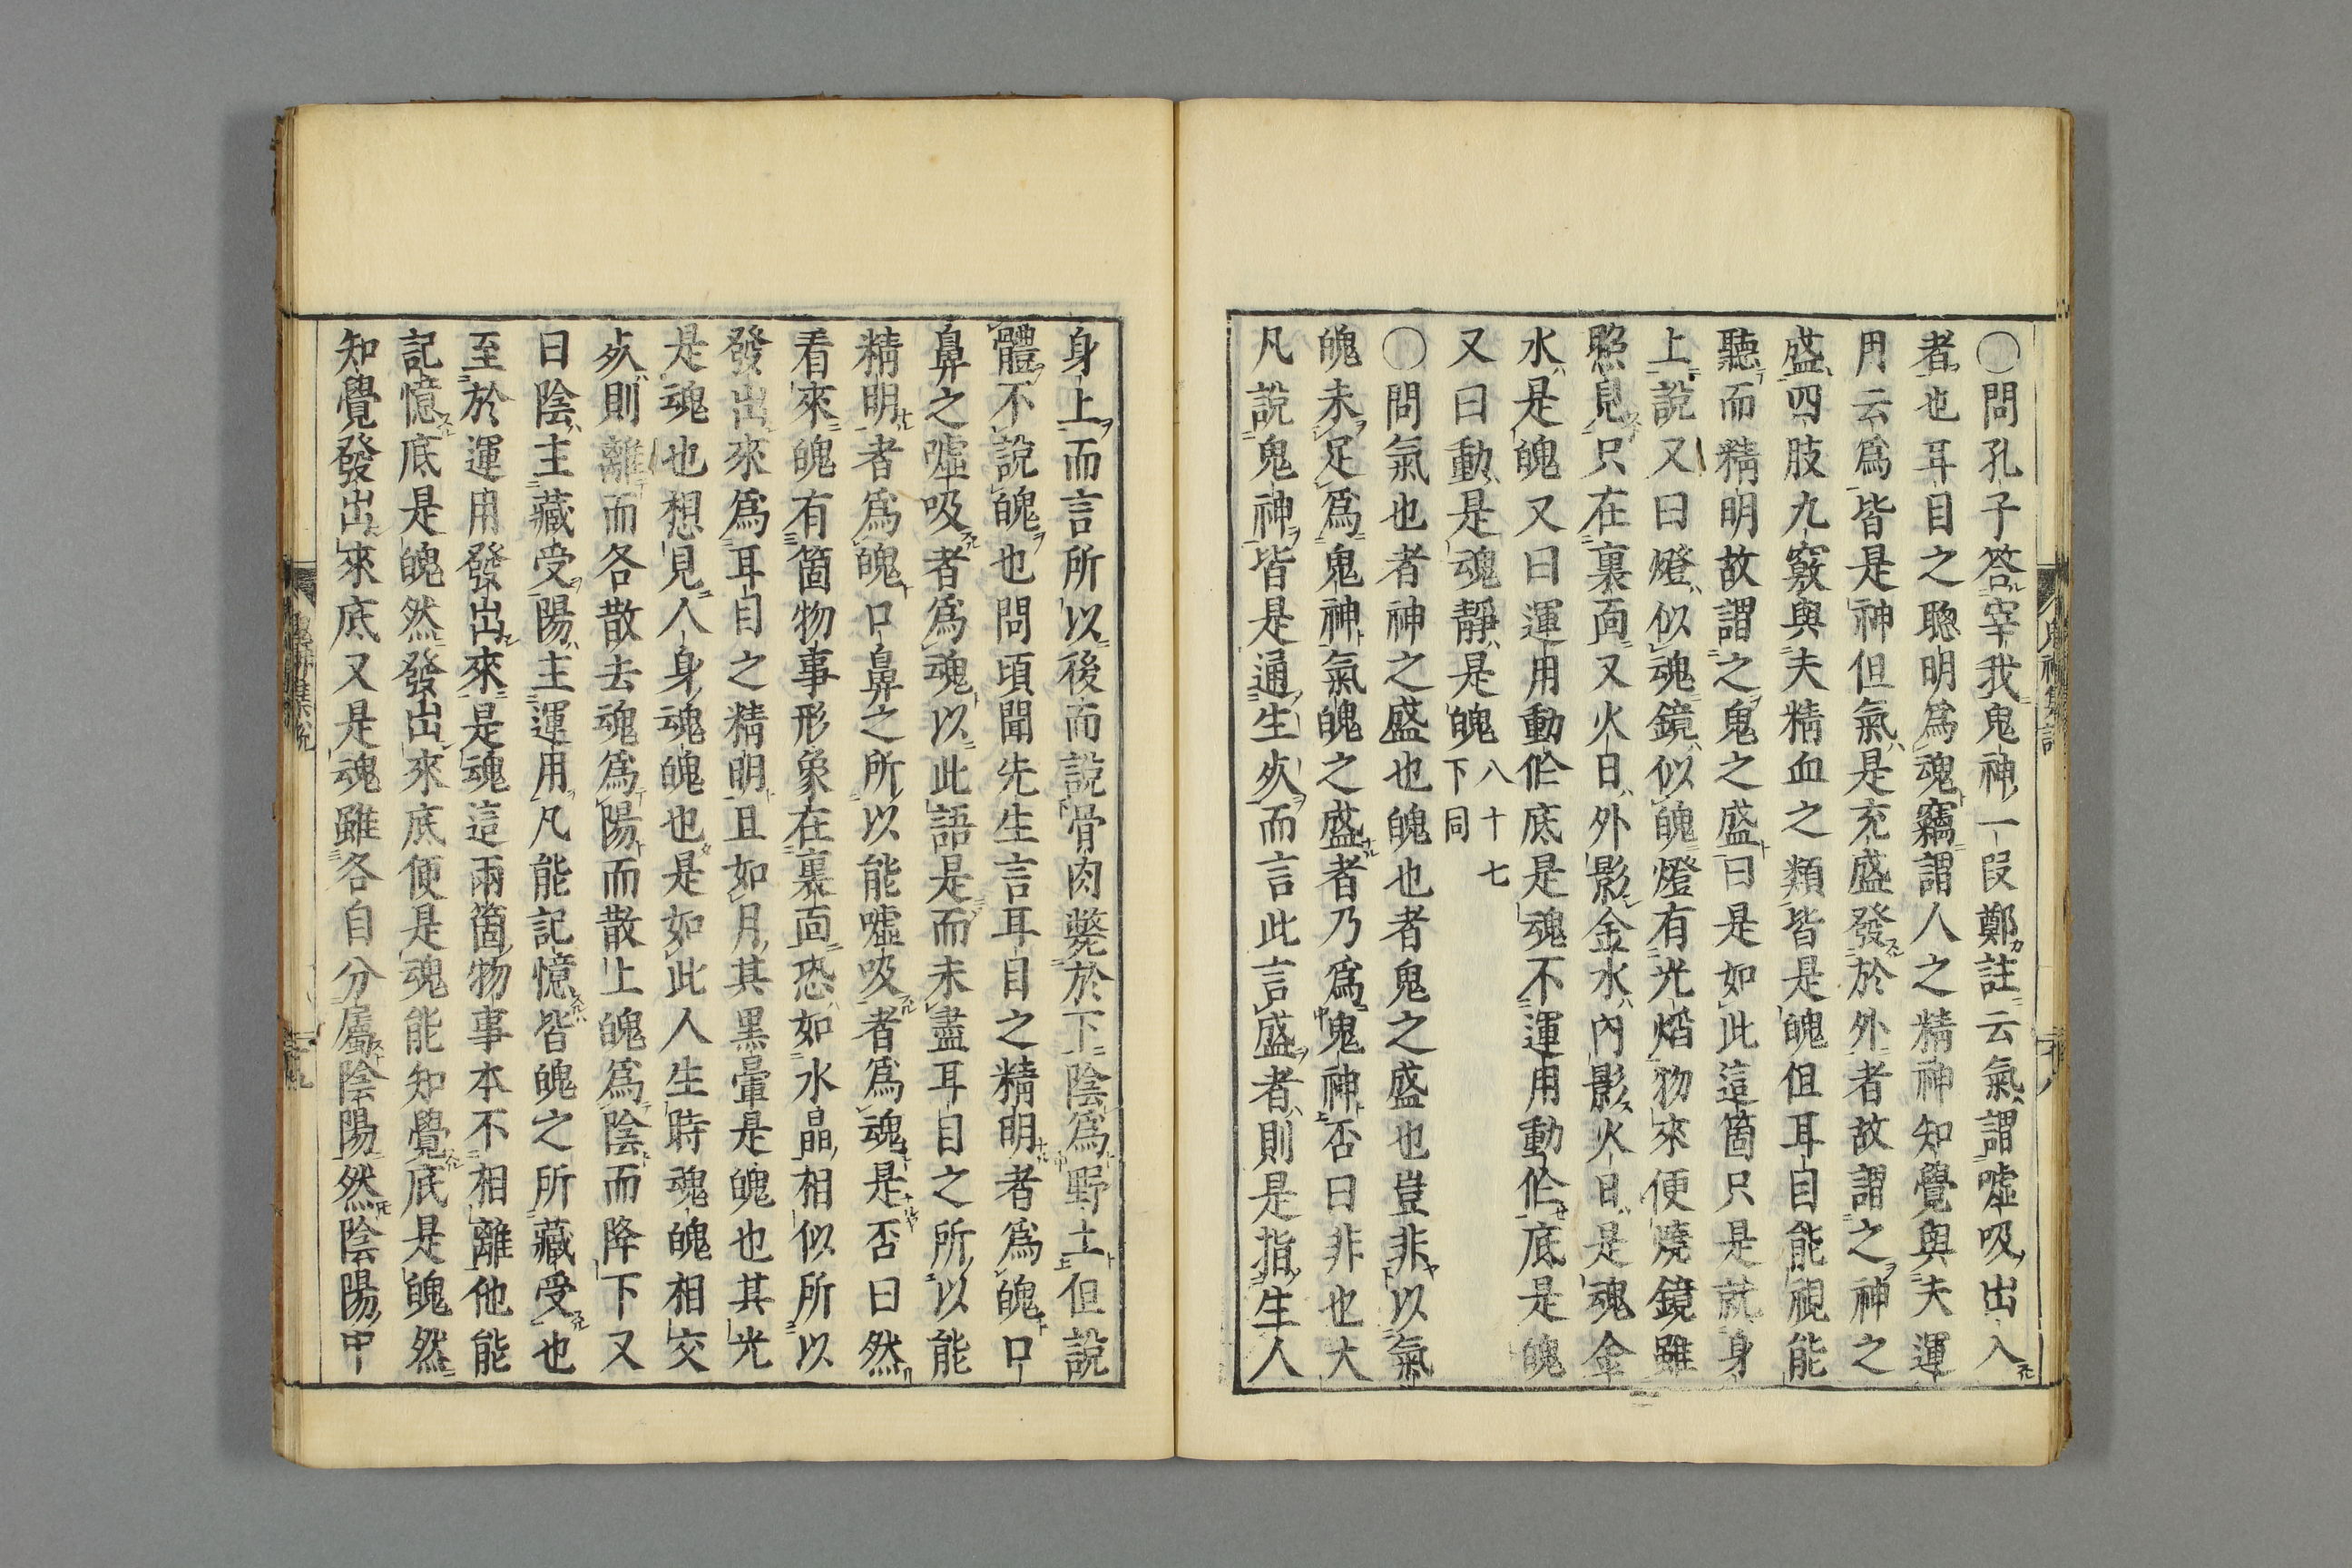 〇問孔子答宰我鬼神一段鄭註云氣謂噓吸出入
者也耳目之聰明爲魂竊謂人之精神知覺與夫運
用云爲皆是神但氣是充盛發於外者故謂之神之
盛四肢九竅與夫精血之類皆是魄但耳目能視能
聽而精明故謂之鬼之盛曰是如此這箇只是就身
上說又曰燈似魂鏡似魄燈有光焰物來便燒鏡雖
照見只在裏面又火日外影金水內影火日是魂金
水是魄又曰運用動作底是魂不運用動作底是魄
又曰動是魂靜是魄八十七下同
〇問氣也者神之盛也魄也者鬼之盛也豈非以氣
魄未足爲鬼神氣魄之盛者乃爲鬼神否曰非也大
凡說鬼神皆是通生死而言此言盛者則是指生人
身上而言所以後而說骨肉斃於下陰爲野土但說
體不說魄也問頃聞先生言耳目之精明者爲魄口
鼻之噓吸者爲魂以此語是而未盡耳目之所以能
精明者爲魄口鼻之所以能噓吸者爲魂是否曰然
看來魄有箇物事形象在裏面恐如水晶相似所以
發出來爲耳目之精明且如月其黑暈是魄也其光
是魂也想見人身魂魄也是如此人生時魂魄相交
死則離而各散去魂爲陽而散上魄爲陰而降下又
曰陰主藏受陽主運用凡能記憶皆魄之所藏受也
至於運用發出來是魂這兩箇物事本不相離他能
記憶底是魄然發出來底便是魂能知覺底是魄然
知覺發出來底又是魂雖各自分屬陰陽然陰陽中